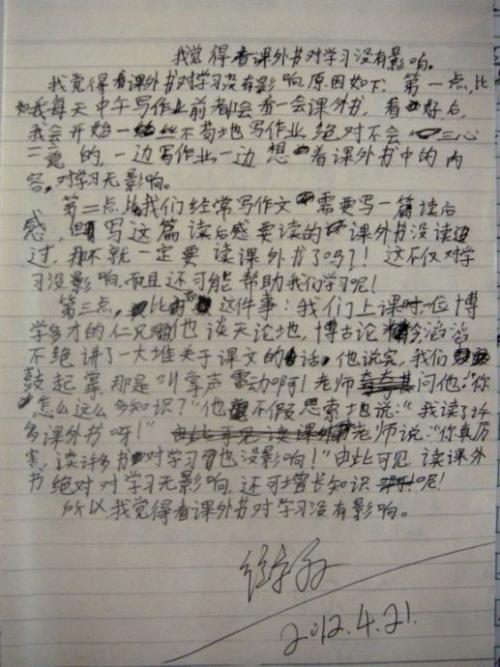 我觉得看课外书对学习没有影响。
我觉得看课外书对学习没有影响,原因如下:第一点,比
如我每天中午写作业前都会看一会课外书,看好后,
我会开始一丝不苟地写作业,绝对不会三心
二意的,一边写作业一边想着课外书中的内
容,对学习无影响。
第二点,比我们经常写作文需要写一篇读后
感,但写这篇读后感要读的课外书没读过
过,那不就一定要读课外书了吗?!这不仅对学
习没影响,而且还可能帮助我们学习呢!
第三点,比如这件事:我们上课时,一位博
学多才的仁兄他谈天论地,博古论今滔滔
不绝讲了一大堆关于课文的话。他说完,我们
鼓起掌,那是叫掌声雷动啊!老师问他:“你
怎么这么多知识?”他不假思索地说:“我读了许
多课外书呀!”老师说:“你真厉
害,读许多书对学习也没影响!”由此可见,读课外
书绝对对学习无影响,还可增长知识呢!
所以,我觉得看课外书对学习没有影响。
2012.4.21.